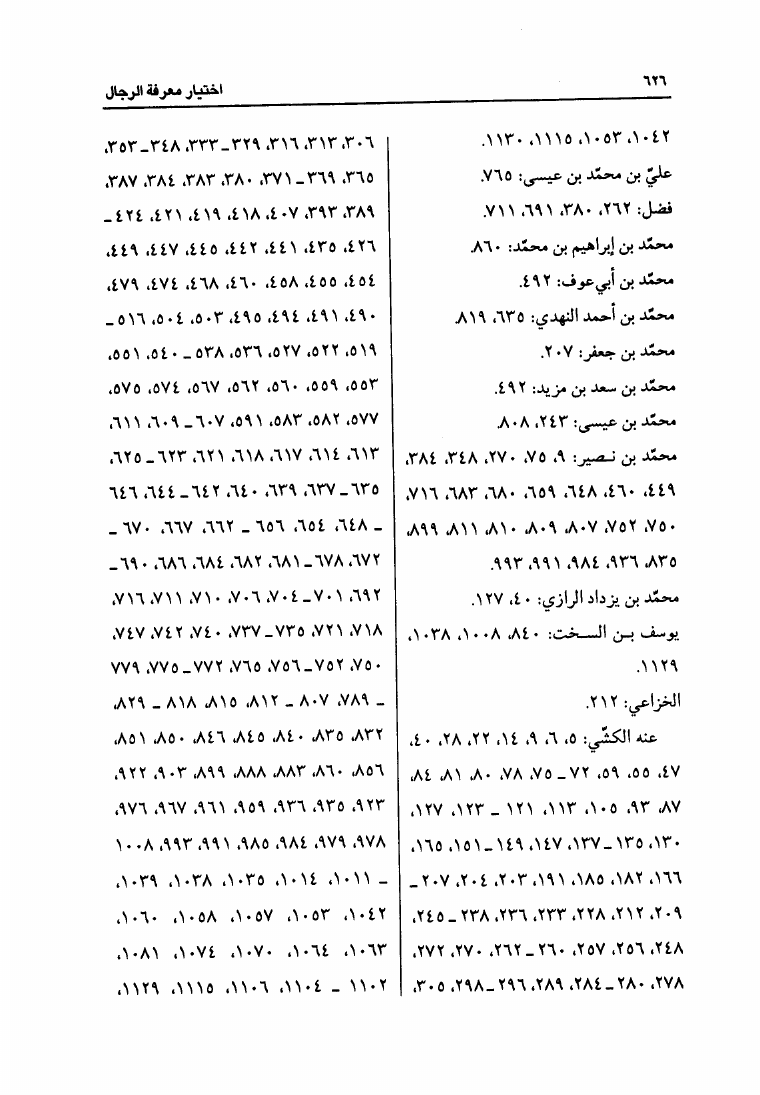 ٦٢٦
اختيار معرفة الرجال
١٠٤٢، ١٠٥٣، ١١١٥، ١١٣٠.
عليّ بن محمّد بن عيسى: ٧٦٥.
فضل: ٢٦٢، ٣٨٠، ٦٩١، ٧١١.
محمّد بن إبراهيم بن محمّد: ٨٦٠.
محمّد بن أبي عوف: ٤٩٢.
محمّد بن أحمد النهدي: ٦٣٥، ٨١٩.
محمّد بن جعفر: ٢٠٧.
محمّد بن سعد بن مزيد: ٤٩٢.
محمّد بن عيسى: ٢٤٣، ٨٠٨.
محمّد بن نصير: ٩، ٧٥، ٢٧٠، ٣٤٨، ٣٨٤،
٤٤٩، ٤٦٠، ٦٤٨، ٦٥٩، ٦٨٠، ٦٨٣، ٧١٦،
٧٥٠، ٧٥٢، ٨٠٧، ٨٠٩، ٨١٠، ٨١١، ٨٩٩،
٨٣٥، ٩٣٦، ٩٨٤، ٩٩١، ٩٩٣.
محمّد بن يزداد الرازي: ٤٠، ١٢٧.
يوسف بن السخت: ٨٤٠، ١٠٠٨، ١٠٣٨،
١١٢٩.
الخزاعي: ٢١٢.
عنه الكشّي: ٥، ٦، ٩، ١٤، ٢٢، ٢٨، ٤٠،
٤٧، ٥٥، ٥٩، ٧٢ – ٧٥، ٧٨، ٨٠، ٨١، ٨٤،
٨٧، ٩٣، ١٠٥، ١١٣، ١٢١ – ١٢٣، ١٢٧،
١٣٠، ١٣٥–١٣٧، ١٤٧، ١٤٩–١٥١، ١٦٥،
١٦٦، ١٨٢، ١٨٥، ١٩١، ٢٠٣، ٢٠٤، ٢٠٧–
٢٠٩، ٢١٢، ٢٢٨، ٢٣٣، ٢٣٦، ٢٣٨–٢٤٥،
٢٤٨، ٢٥٦، ٢٥٧، ٢٦٠–٢٦٢، ٢٧٠، ٢٧٢،
٢٧٨، ٢٨٠–٢٨٤، ٢٨٩، ٢٩٦–٢٩٨، ٣٠٥،
٣٠٦، ٣١٣، ٣١٦، ٣٢٩–٣٣٣، ٣٤٨–٣٥٣،
٣٦٥، ٣٦٩–٣٧١، ٣٨٠، ٣٨٣، ٣٨٤، ٣٨٧،
٣٨٩، ٣٩٣، ٤٠٧، ٤١٨، ٤١٩، ٤٢١، ٤٢٤–
٤٢٦، ٤٣٥، ٤٤١، ٤٤٢، ٤٤٥، ٤٤٧، ٤٤٩،
٤٥٤، ٤٥٥، ٤٥٨، ٤٦٠، ٤٦٨، ٤٧٤، ٤٧٩،
٤٩٠، ٤٩١، ٤٩٤، ٤٩٥، ٥٠٣، ٥٠٤، ٥١٦–
٥١٩، ٥٢٢، ٥٢٧، ٥٣٦، ٥٣٨–٥٤٠، ٥٥١،
٥٥٣، ٥٥٩، ٥٦٠، ٥٦٢، ٥٦٧، ٥٧٤، ٥٧٥،
٥٧٧، ٥٨٢، ٥٨٣، ٥٩١، ٦٠٧–٦٠٩، ٦١١،
٦١٣، ٦١٤، ٦١٧، ٦١٨، ٦٢١، ٦٢٣–٦٢٥،
٦٣٥–٦٣٧، ٦٣٩، ٦٤٠، ٦٤٢–٦٤٤، ٦٤٦
– ٦٤٨، ٦٥٤، ٦٥٦ – ٦٦٢، ٦٦٧، ٦٧٠ –
٦٧٢، ٦٧٨–٦٨١، ٦٨٢، ٦٨٤، ٦٨٦، ٦٩٠–
٦٩٢، ٧٠١–٧٠٤، ٧٠٦، ٧١٠، ٧١١، ٧١٦،
٧١٨، ٧٢١، ٧٣٥–٧٣٧، ٧٤٠، ٧٤٢، ٧٤٧،
٧٥٠، ٧٥٢–٧٥٦، ٧٦٥، ٧٧٢–٧٧٥، ٧٧٩
– ٧٨٩، ٨٠٧ – ٨١٢، ٨١٥، ٨١٨ – ٨٢٩،
٨٣٢، ٨٣٥، ٨٤٠، ٨٤٥، ٨٤٦، ٨٥٠، ٨٥١،
٨٥٦، ٨٦٠، ٨٨٣، ٨٨٨، ٨٩٩، ٩٠٣، ٩٢٢،
٩٢٣، ٩٣٥، ٩٣٦، ٩٥٩، ٩٦١، ٩٦٧، ٩٧٦،
٩٧٨، ٩٧٩، ٩٨٤، ٩٨٥، ٩٩١، ٩٩٣، ١٠٠٨
– ١٠١١، ١٠١٤، ١٠٣٥، ١٠٣٨، ١٠٣٩،
١٠٤٢، ١٠٥٣، ١٠٥٧، ١٠٥٨، ١٠٦٠،
١٠٦٣، ١٠٦٤، ١٠٧٠، ١٠٧٤، ١٠٨١،
١١٠٢ – ١١٠٤، ١١٠٦، ١١١٥، ١١٢٩،